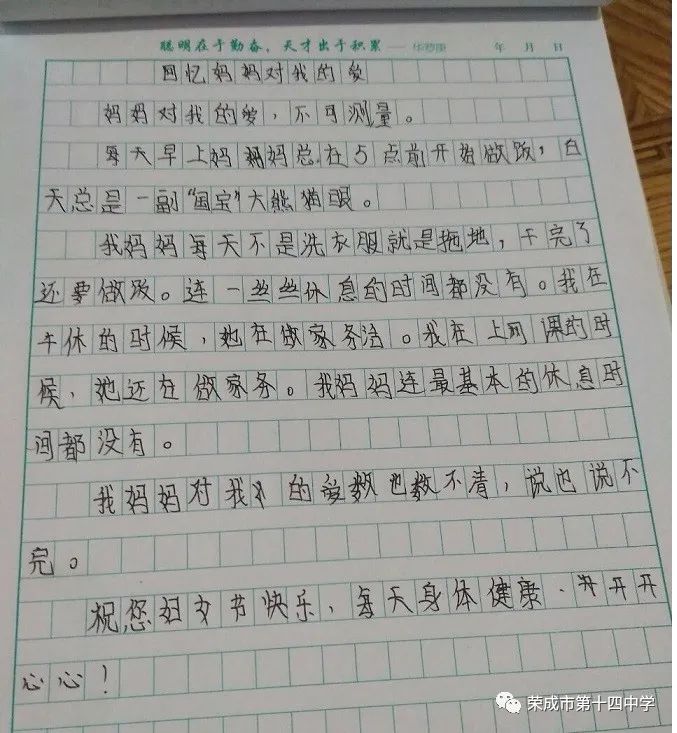 聪明在于勤奋，天才出于积累——华罗庚 年 月 日
回忆妈妈对我的爱
妈妈对我的爱，不可测量。
每天早上妈妈总在5点前开始做饭，白
天总是一副“国宝”大熊猫眼。
我妈妈每天不是洗衣服就是拖地，干完了
还要做饭。连一丝丝休息的时间都没有。我在
午休的时候，她在做家务活。我在上网课的时
候，她还在做家务。我妈妈连最基本的休息时
间都没有。
我妈妈对我的爱数也数不清，说也说不
完。
祝您妇女节快乐，每天身体健康．开开
心心！
荣成市第十四中学